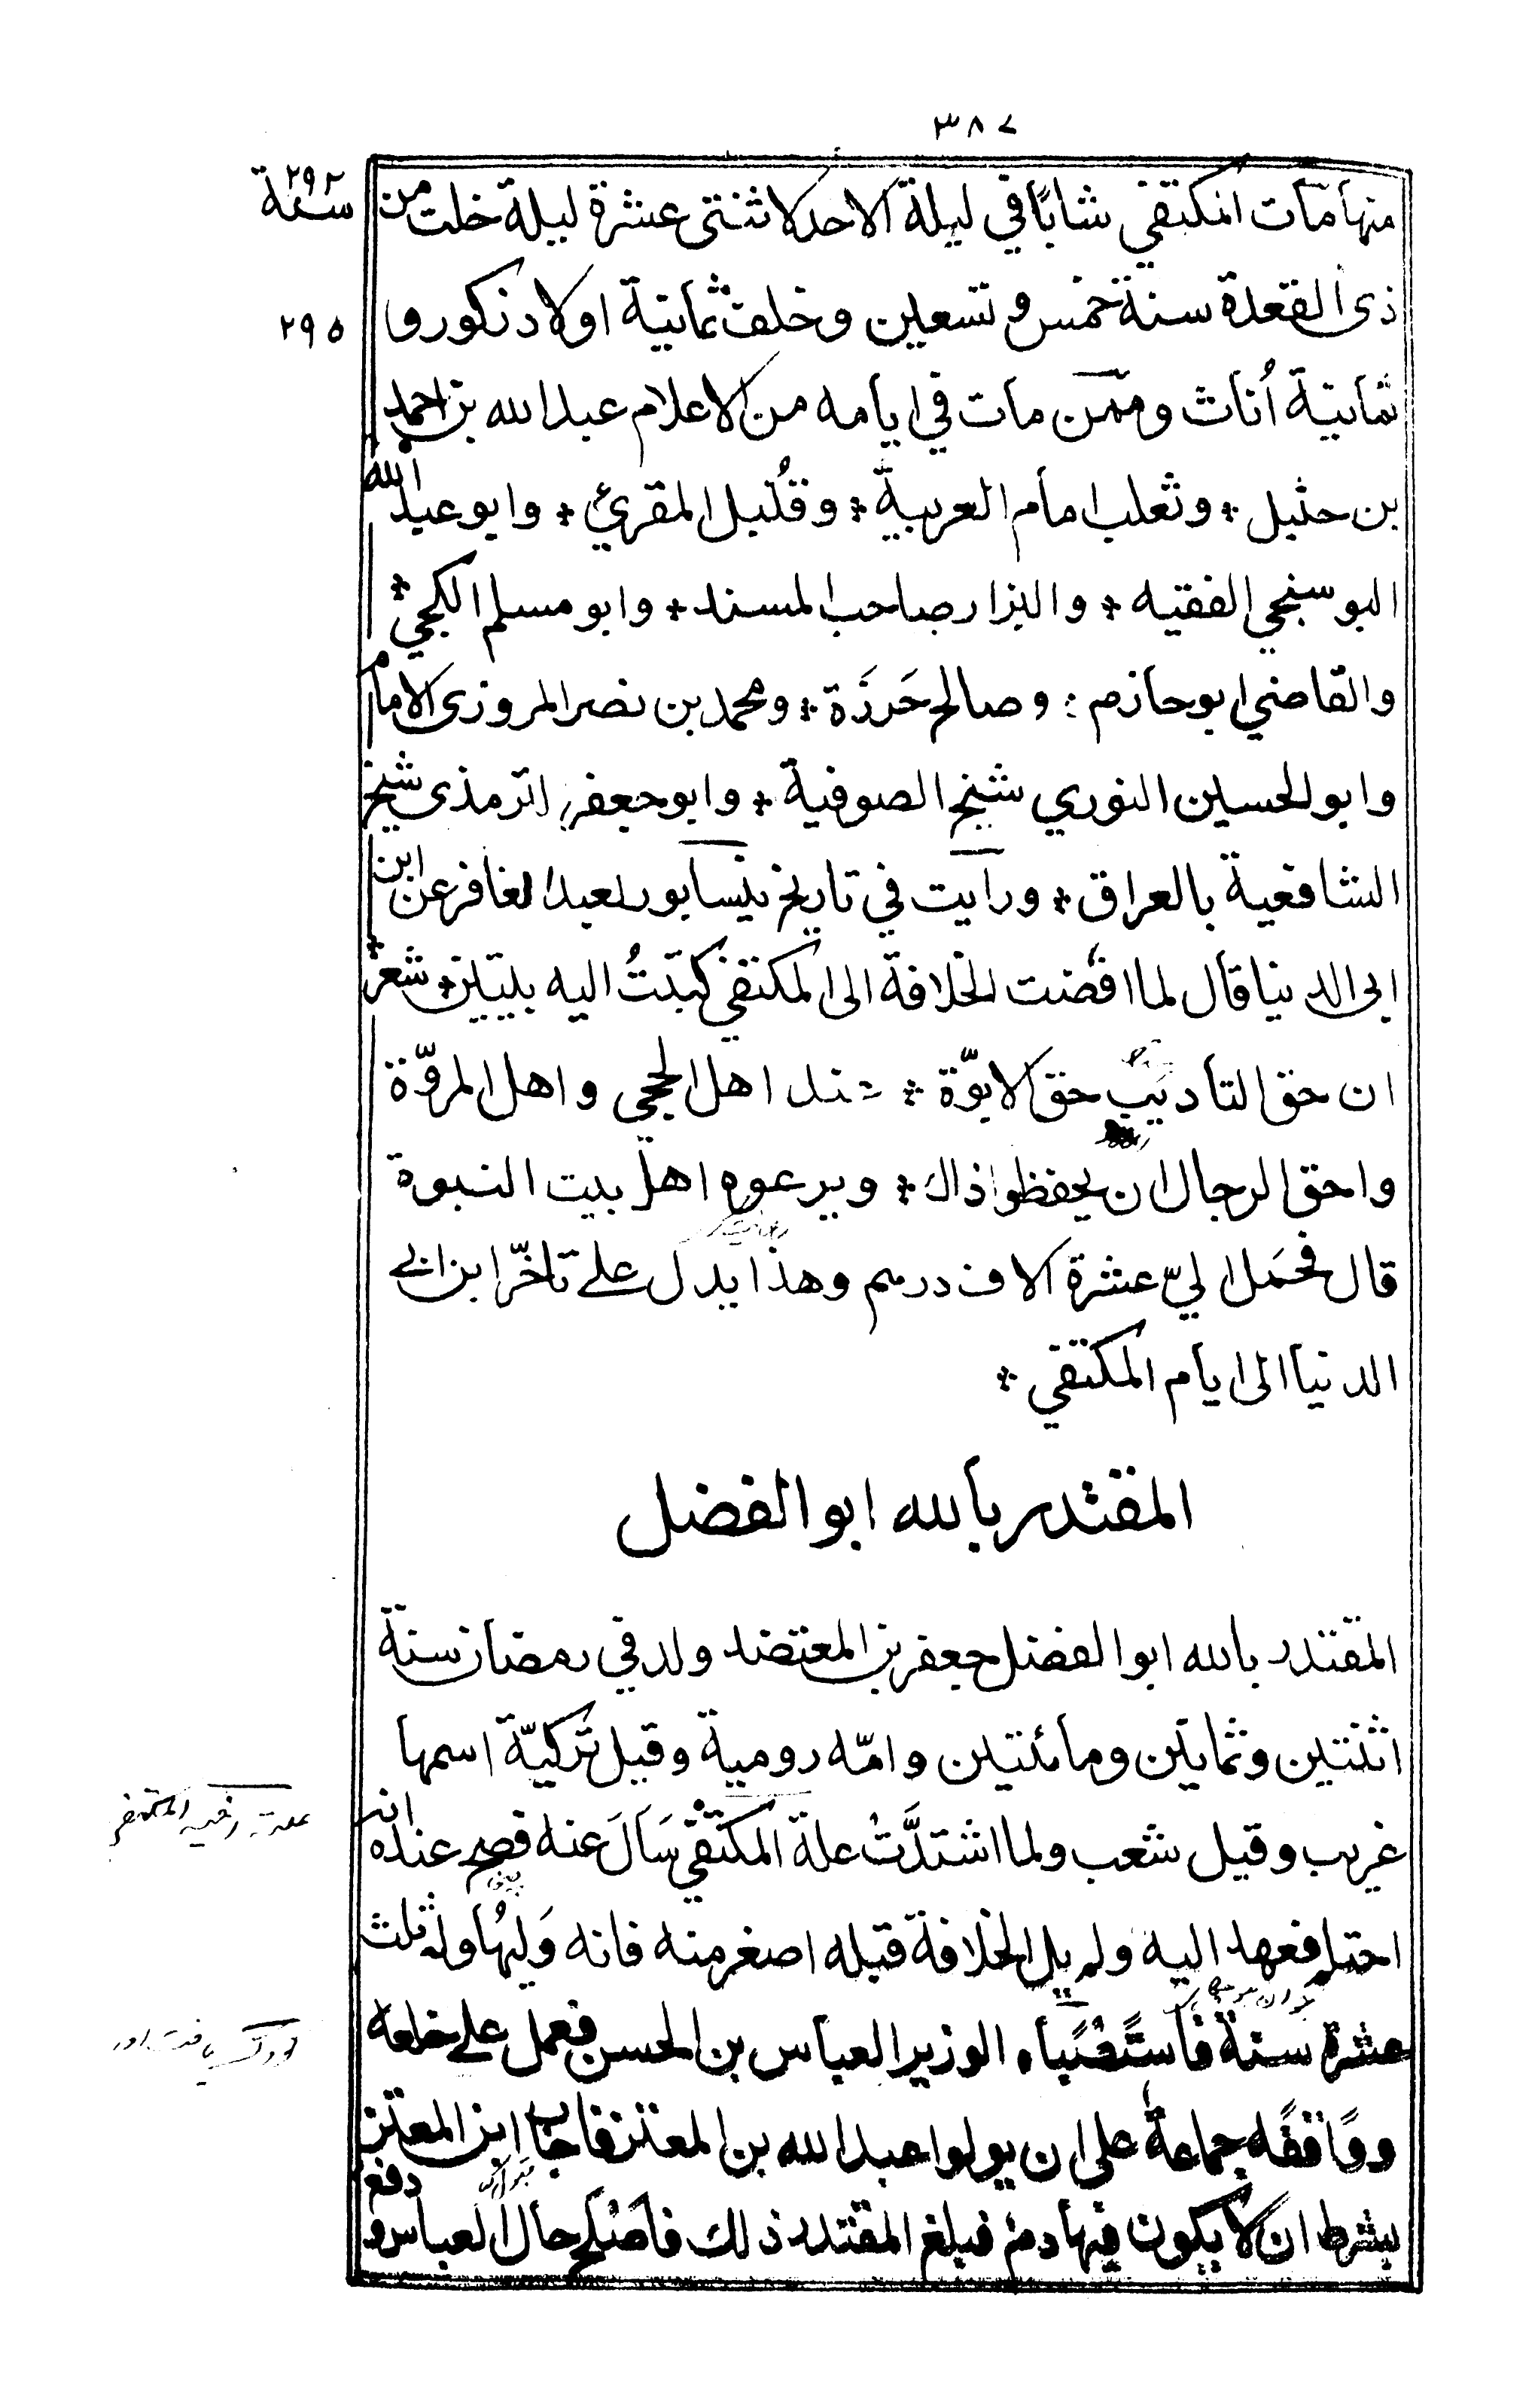 ٣٨٧
سنة ٢٩٢
منها مات المكتفي شابًا في ليلة الاحد لاثنتى عشرة ليلة خلت من
ذى القعدة سنة خمس و تسعين و خلف ثمانية اولاد ذكور و
٢٩٥
ثمانية اُناث وممّن مات في ايامه من الاعلام عبد الله بن احمد
بن حنبل * وثعلب امام العربيّة * وقُنبل المقرئ * وابو عبد الله
البوسنجي الفقيه * والبزار صاحب المسند * وابو مسلم الكجي *
والقاضي ابو حازم : وصالح جَرزَة * ومحمد بن نصر المروزى الامام
وابو الحسين النوري شيخ الصوفية * وابو جعفر الترمذى شيخ
الشافعية بالعراق * ورأيت في تاريخ نيسابور لعبد الغافر عن ابن
ابى الدنيا قال لما افضت الخلافة الى المكتفي كتبتُ اليه بيتين * شعر *
ان حق التأديب حق الابوّة * عند اهل الحجى واهل المروّة
واحق الرجال ان يحفظوا ذاك * ويرعوه اهل بيت النبوة
قال فحَمَل اليّ عشرة الاف درهم وهذا يدل علے تاخّر ابن ابى
الدنيا الى ايام المكتفي *
المقتدر بالله ابو الفضل
المقتدر بالله ابو الفضل جعفر بن المعتضد ولد في رمضان سنة
اثنتين وثمانين ومائتين وامّه رومية وقيل تركيّة اسمها
غريب وقيل شعب ولما اشتدَّتْ علة المكتفي سَأل عنه فصح عنده انه
احتلم فعهد اليه ولم يل الخلافة قبله اصغر منه فانه وَليهُا وله ثلث
عشرة سنة فاستَصْباه الوزير العباس بن الحسن فعمل علے خلعه
ووافقه جماعة على ان يولوا عبد الله بن المعتز فاجاب ابن المعتز
بشرط ان لا يكون فيها دم فبلغ المقتدر ذلك فاصْلح حال العباس و دفع